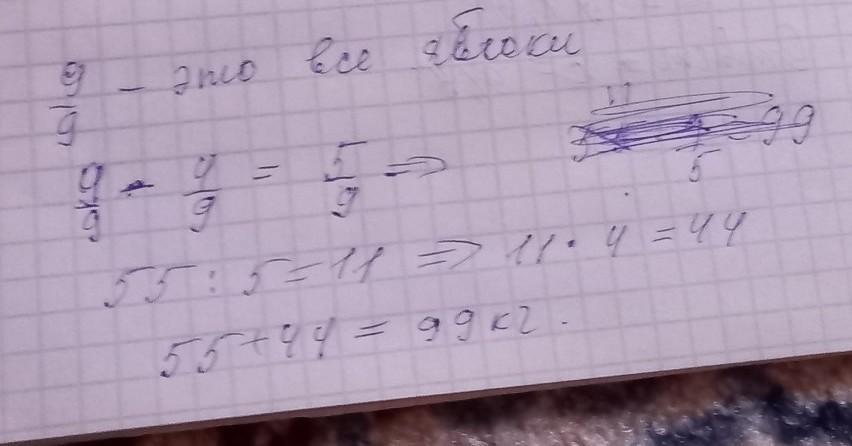 9/9 – это все яблоки
9/9 - 4/9 = 5/9 =>
55 : 5 = 11 => 11 · 4 = 44
55 + 44 = 99 кг.